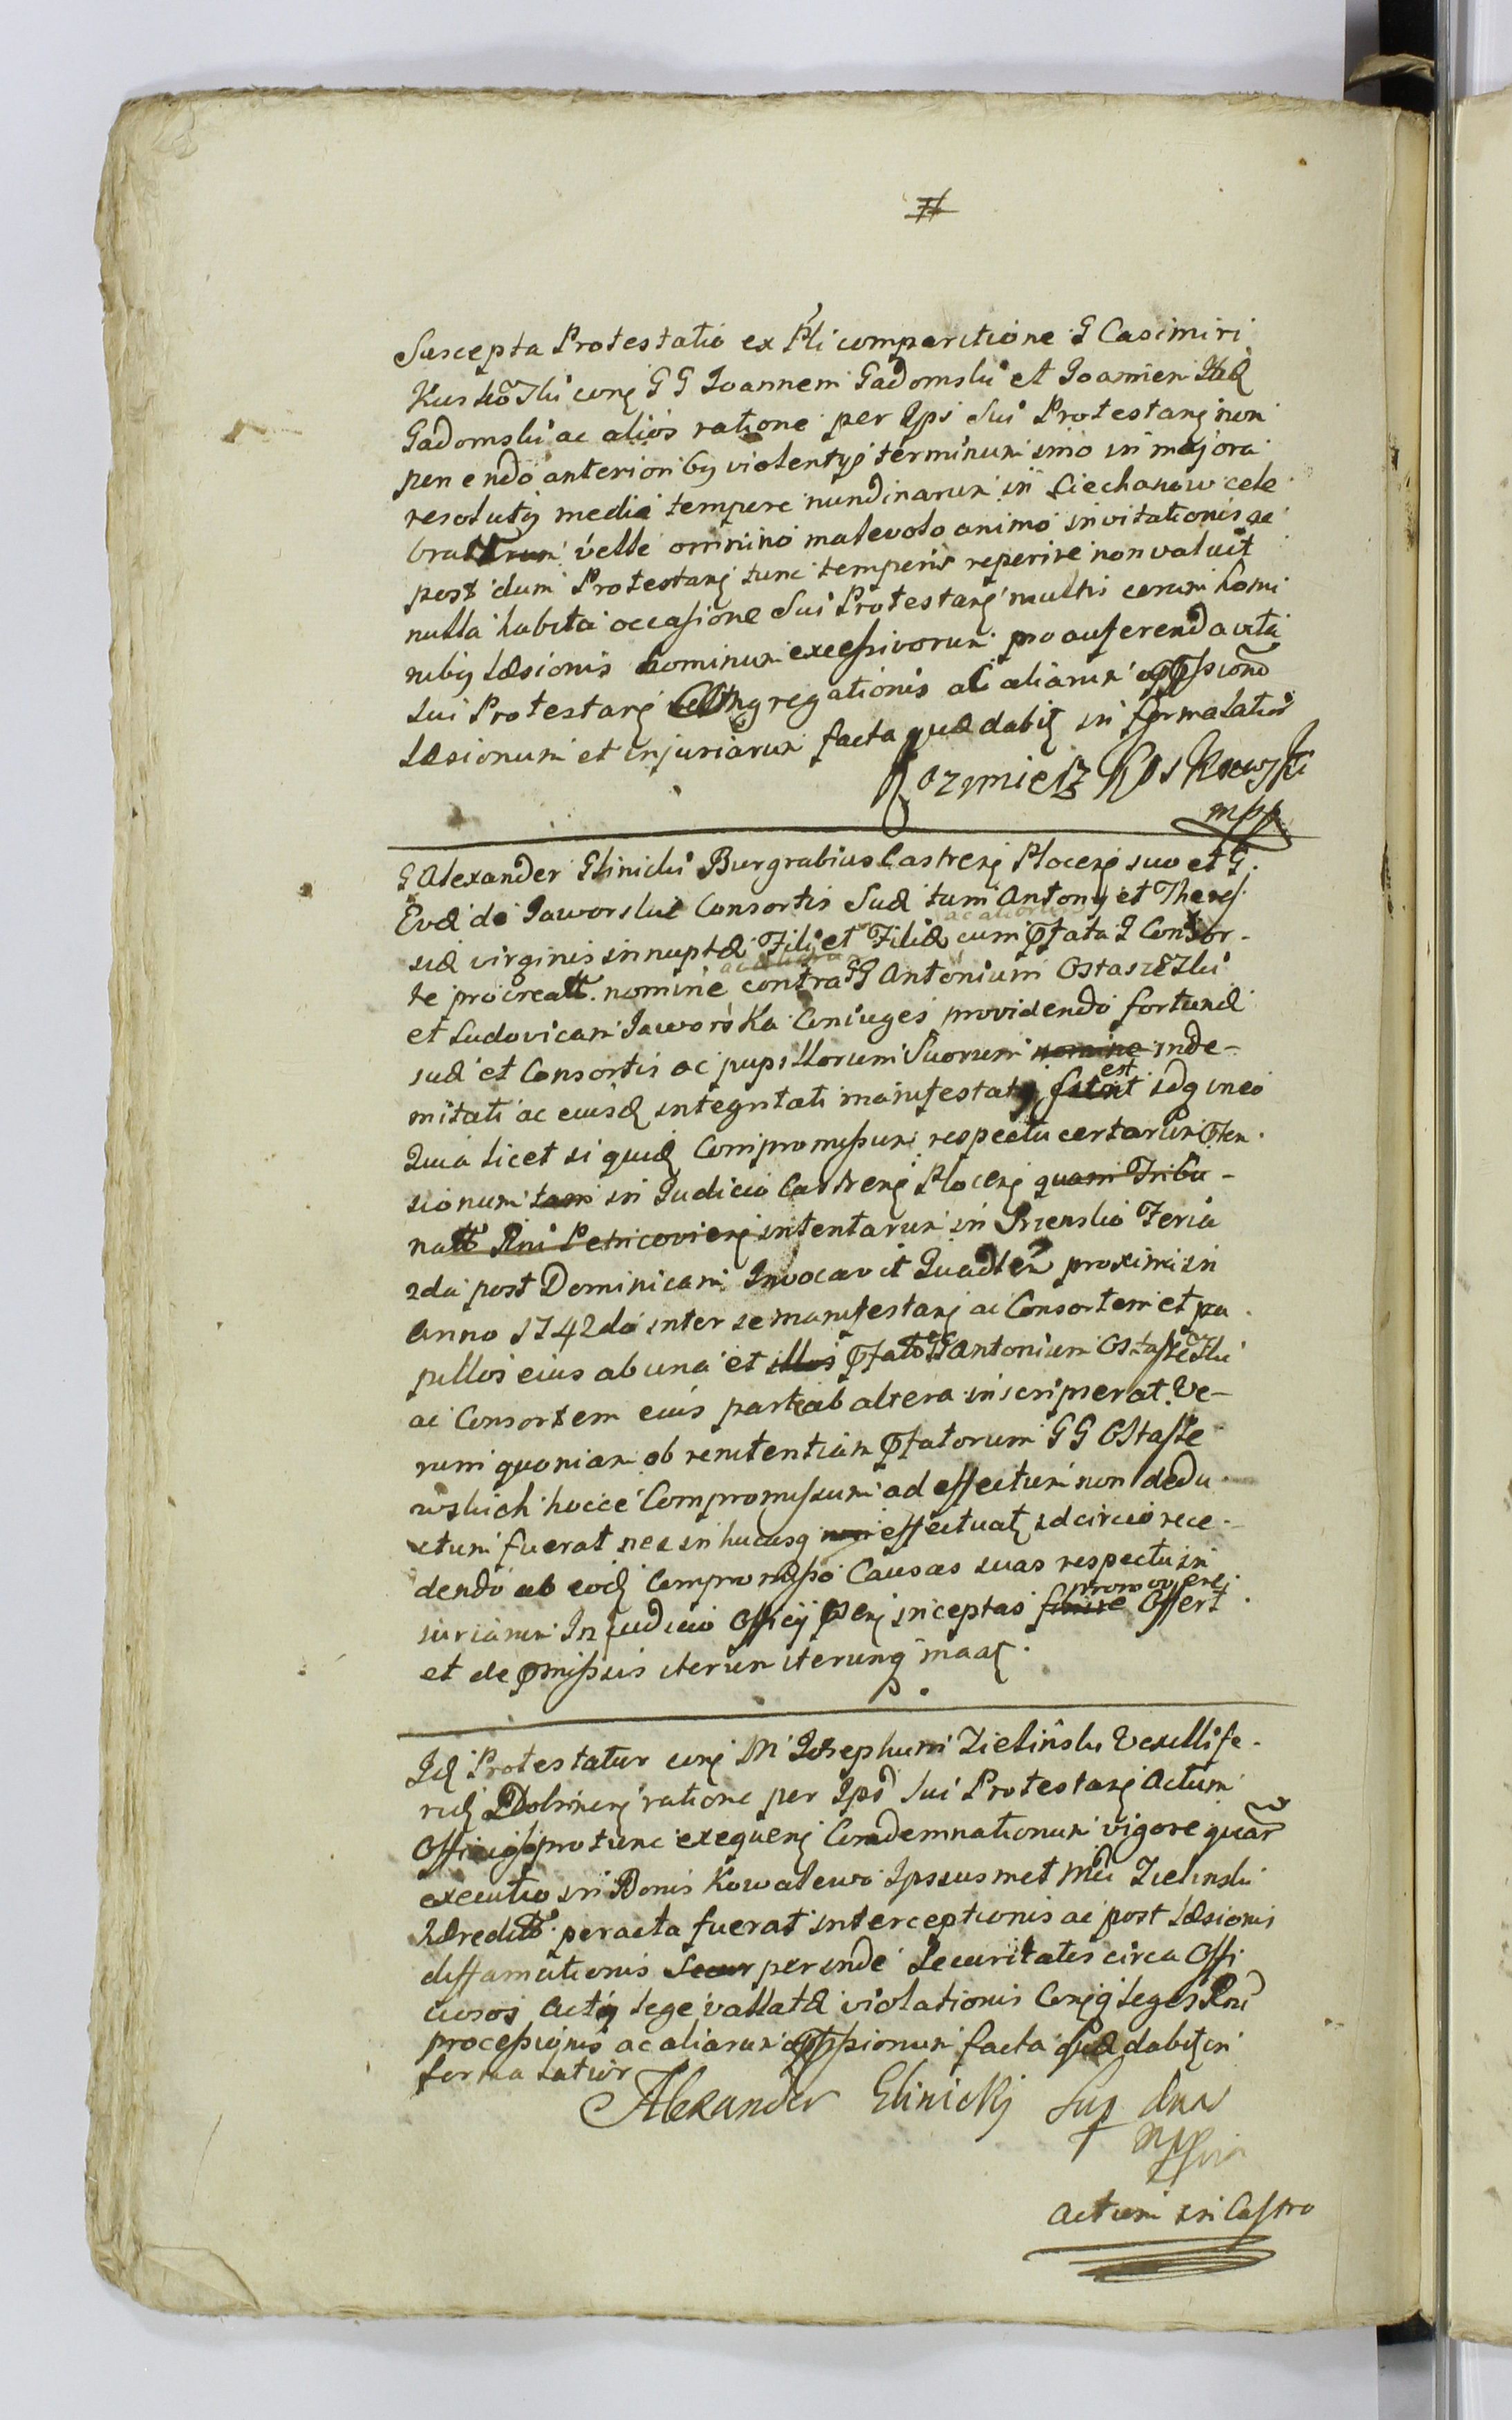 Suscepta Protestatio ex Pli comparitione G Casimiri
Kuskowski conz G G Joannem Gadomski et Joannem Itid
Gadomski ac alios ratione per Ipsi Sui Protestanz non
ponendo anterioribq violentys terminum imo in majora
resolutq media tempore nundinarum in Ciechanow cele
velle omnino malevolo animo invitationis ac
post dum Protestanz tunc temporis reperire non valuit
nulla habita occasione Sui Protestanz multis cerum homi
nibq Læsionis hominum excessivorum pro auferenda vita
sui Protestanz Congregationis ac aliarum oppssiono
Læsionum et injuriarum facta quæ dabit in forma latiori
Kozmierz Koskowski
mpp
G Alexander Glinicki Burgrabius Castrenz Plocenz suo et G.
Evæ de Jaworskie Consortis Suæ tum Antony et Theres
siæ virginis innuptæ Filii et Filiæ cum pfata G Consor-
ac aliorum
te procreatt. nomine contra GG Antonium Ostaszewski
et Ludovicam Jaworska Coniuges providendo fortunæ
suæ et Consortis ac pupillorum Suorum nomine inde-
mitati ac eiusd integritati manifestatq est idq ineo
Quia licet siquid Compromissum respectu certarum pten
sionum tam in Judicio Castrenz Plocenz quam Tribu-
natt Rni Petricovienz intentarum in Feria
2da post Dominicam Invocavit Quadlem proximi in
Anno 1742do inter se manifestanz ac Consortem et pu
pillos eius ab una et illos pfatos GG Antonium Ostaszewski
ac Consortem eius parte ab altera inscripserat. Ve-
rum quoniam ob renitentiam pfatorum GG Ostasze
wskich hocce Compromissum ad effectum non dedu
ctum fuerat nec in hucusq non effectuatz idcirco rece-
dendo ab eodz Compromisso Causas suas respectu in
promovere
juriarum In Judicio Officij psenz inceptas finire Offert
et de pmissis iterum iterumq maaz.
Idz Protestatur conz M Josephum Zielinski Vexillife-
rum Dobrinenz ratione per Ipsd sui Protestanz Actum
Officiosq protunc exequenz Condemnationum vigore quar
executio in Bonis Kowalewo Ipsiusmet Mci Zielinski
Hæreditt. peracta fuerat interceptionis ac post Læsionis
diffamationis Secur perinde Securitatis circa Offi
ciosos Actq lege vallatæ violationis Conzq leges Rni
processionis ac aliarum oppssionum facta quæ dabit in
forma latior
Alexander Glinickij
Actum in Castro